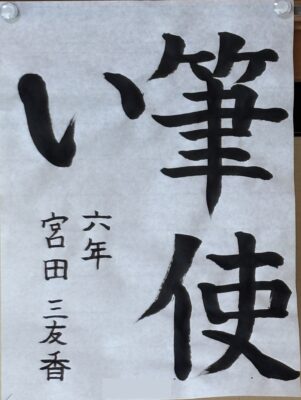 筆使
い
六年
宮田三友香